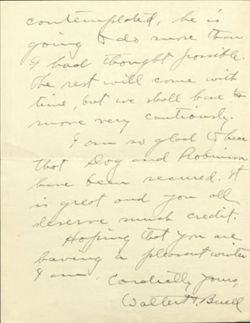 contemplated, he is
going to do more than
I had thought possible.
The rest will come with
time, but we shall have to
move very cautiously.
I am so glad to hear
that Dog and Robinson
have been secured. It
is great and you all
deserve much credit.
Hoping that you are
having a pleasant winter
I am. Cordially yours,
Walter H. Buell